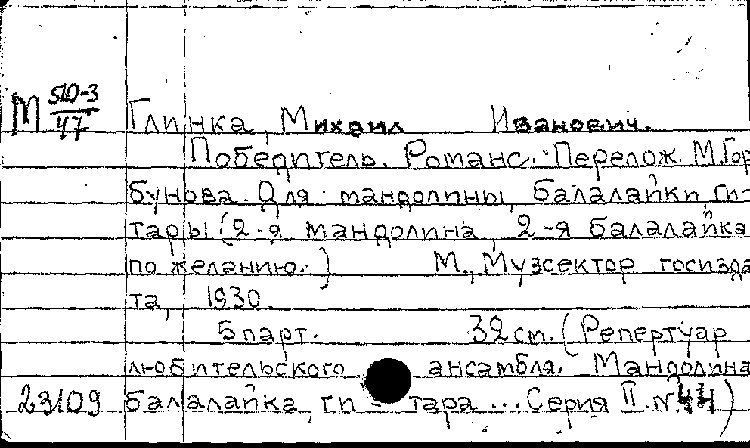 М 510-3/47 Глинка, Михаил Иванович.
Победитель. Романс. Перелож. М.Гор
бунова для мандолины, балалайки, ги-
тары (2-я мандолина, 2-я балалайка
по желанию.) М., Музсектор госизда
та, 1930.
5 парт. 32 см. (Репертуар
любительского ансамбля. Мандолина
23109 балалайка, ги - тара ... Серия II. №44)